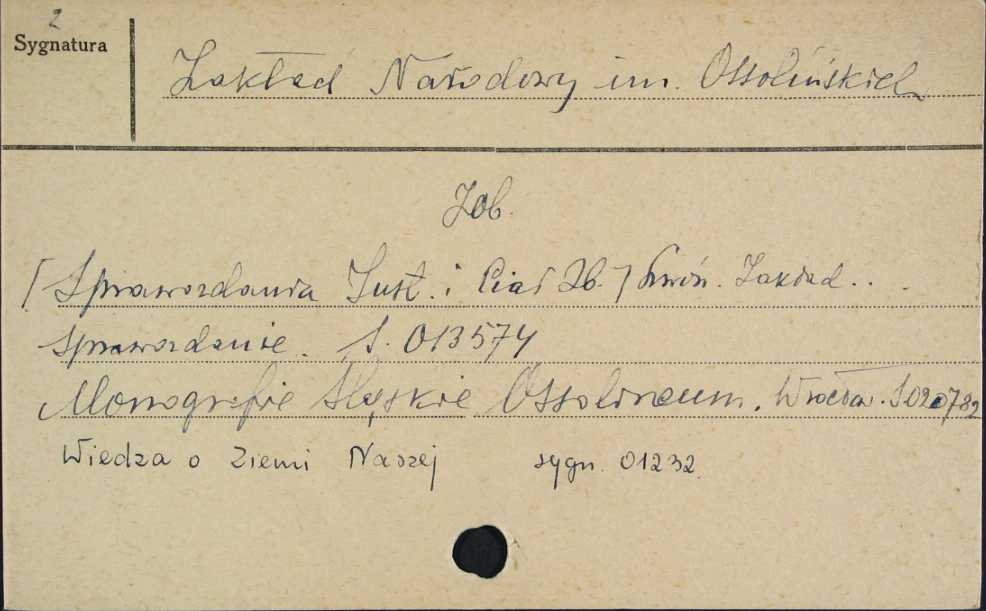 2
Sygnatura
Zakład Narodowy im. Ossolińskich
Zob.
[Sprawozdania Inst. i Ciał Zb.] Zakład..
Sprawozdanie. S. 013574
Monografie Śląskie Ossolineum. Wrocław. S 020782
Wiedza o Ziemi Naszej sygn. 01232.